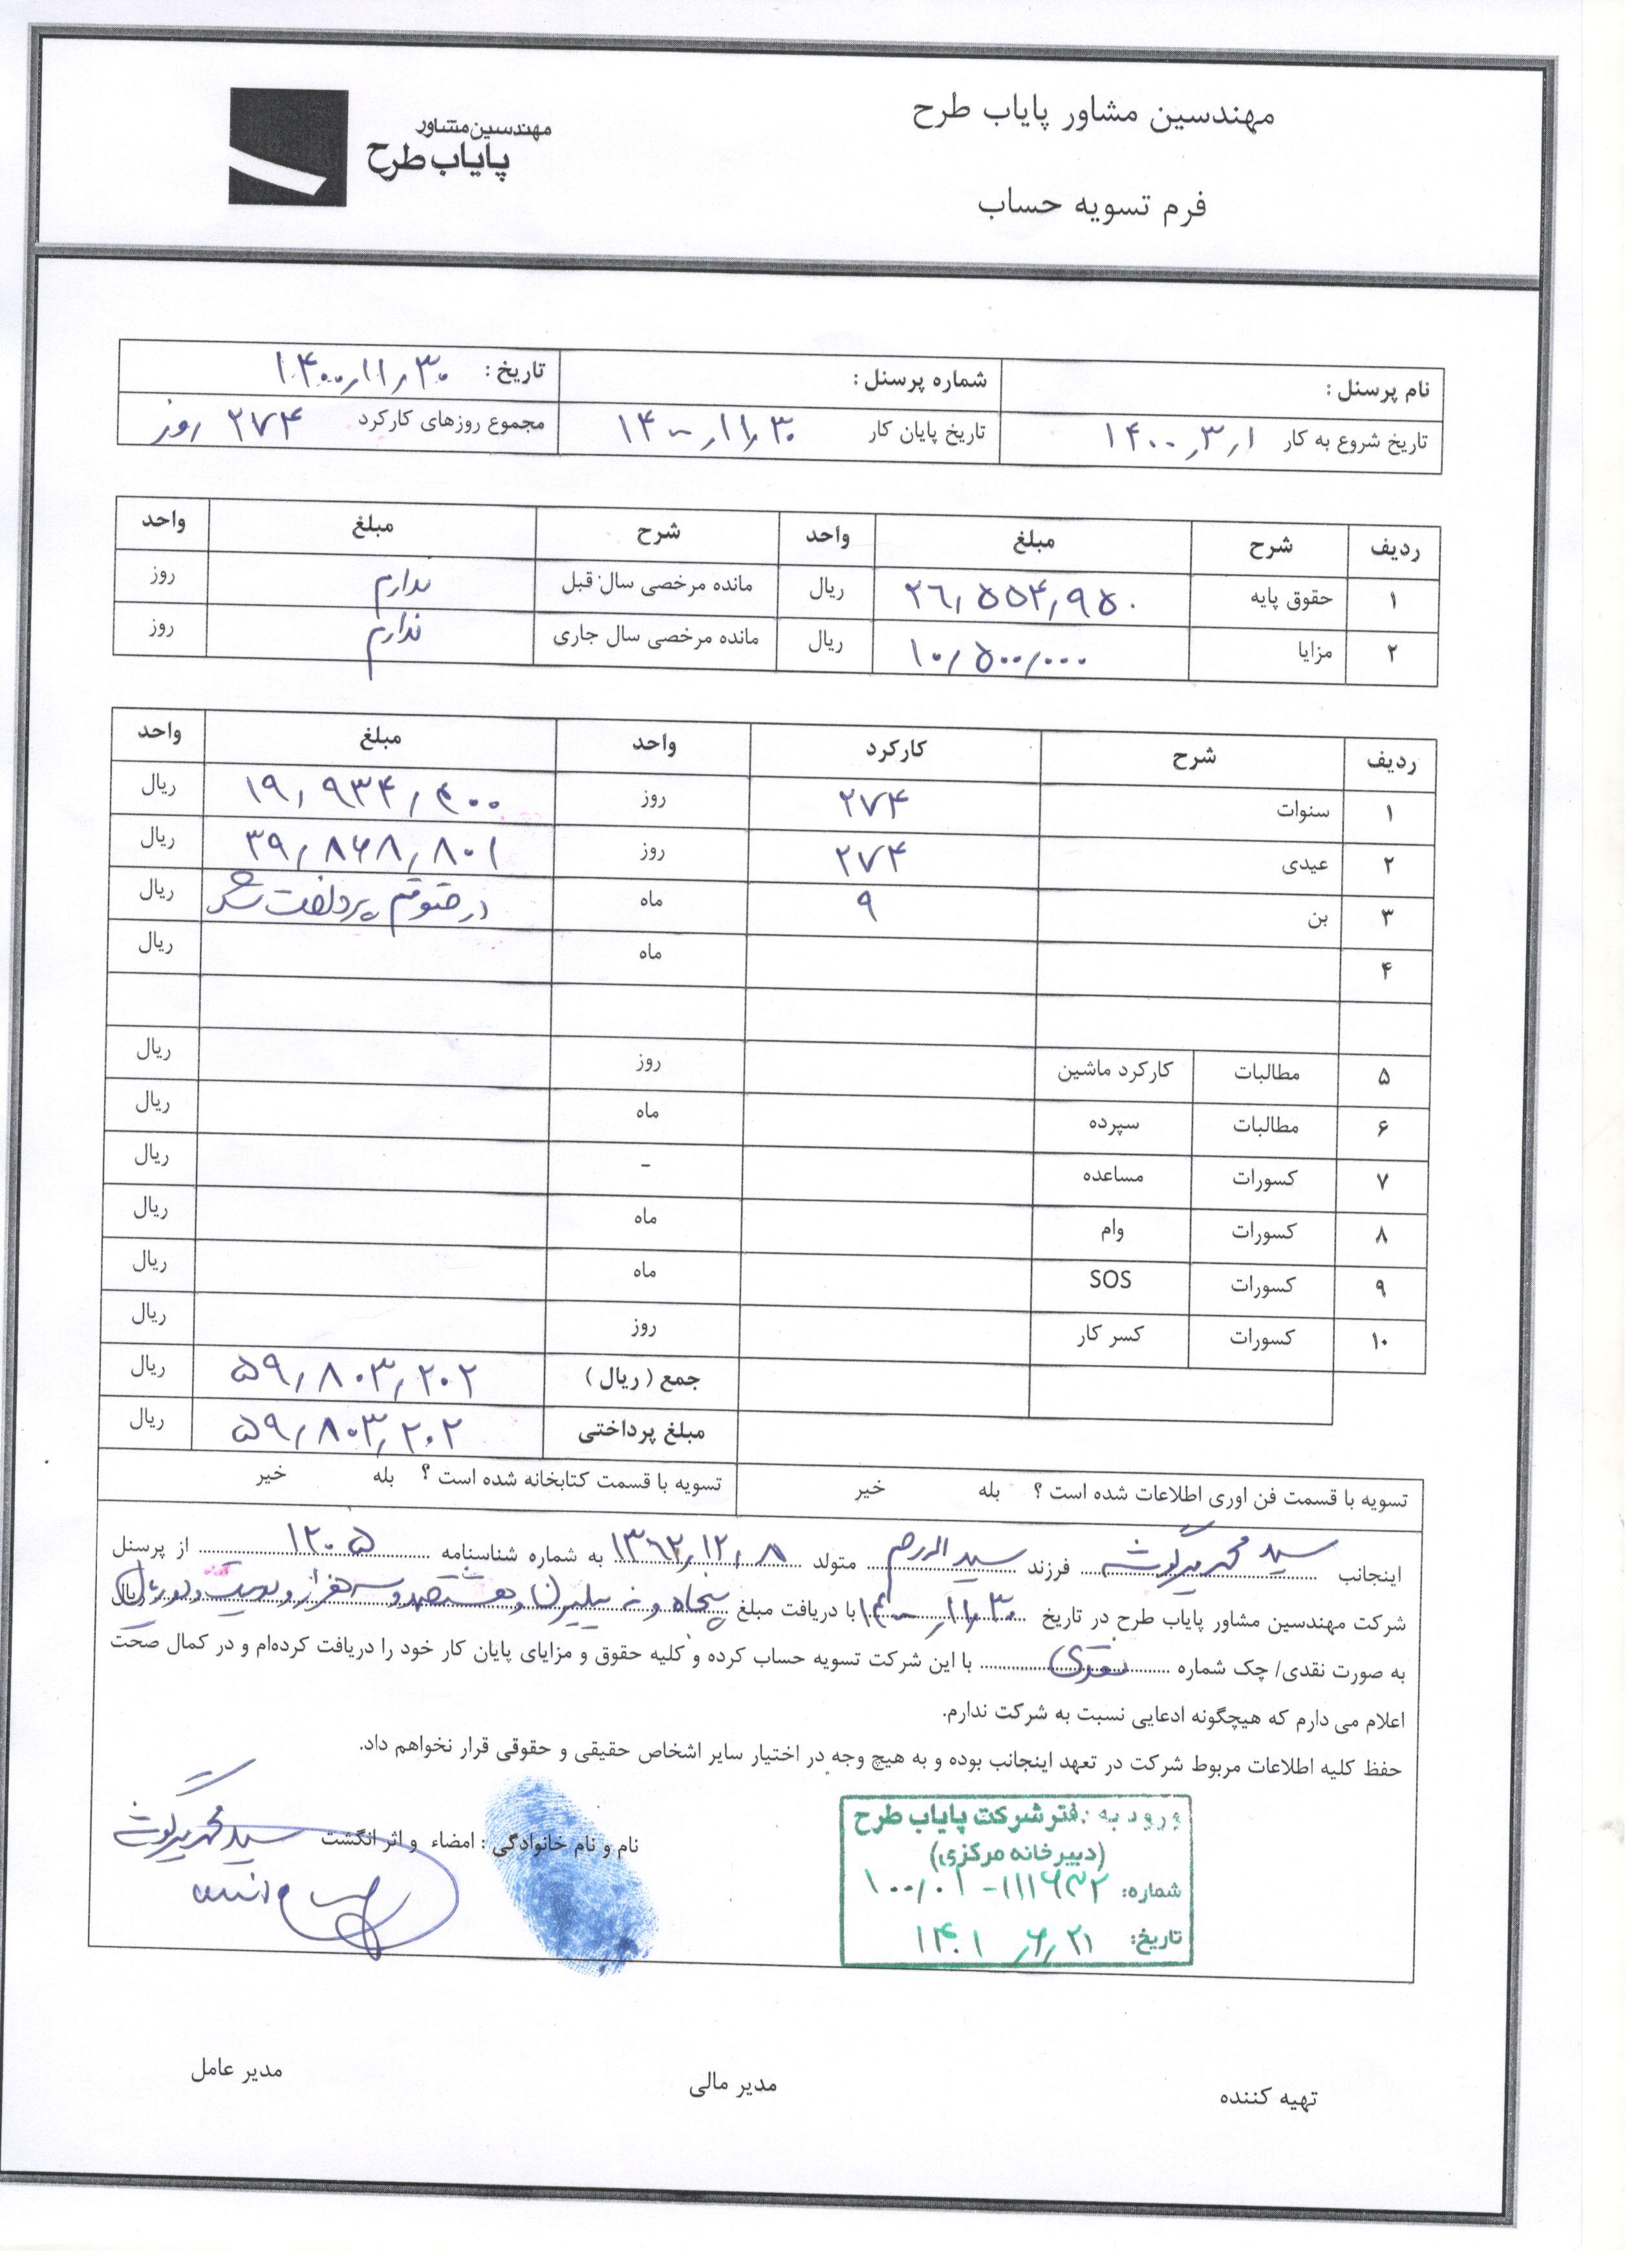 مهندسین مشاور پایاب طرح
مهندسین مشاور
پایاب طرح
فرم تسویه حساب
نام پرسنل : شماره پرسنل : تاریخ : ۱۴۰۰,۱۱,۳۰
تاریخ شروع به کار ۱۴۰۰,۳,۱ تاریخ پایان کار ۱۴۰۰,۱۱,۳۰ مجموع روزهای کارکرد ۲۷۴ روز
ردیف شرح مبلغ واحد شرح مبلغ واحد
۱ حقوق پایه ۲۶,۵۵۴,۹۵۰ ریال مانده مرخصی سال قبل ندارم روز
۲ مزایا ۱۰,۵۰۰,۰۰۰ ریال مانده مرخصی سال جاری ندارم روز
ردیف شرح کارکرد واحد مبلغ واحد
۱ سنوات ۲۷۴ روز ۱۹,۹۳۴,۴۰۰ ریال
۲ عیدی ۲۷۴ روز ۳۹,۸۶۸,۸۰۱ ریال
۳ بن ۹ ماه در حقوقم پرداخت شد ریال
۴ ماه ریال
۵ مطالبات کارکرد ماشین روز ریال
۶ مطالبات سپرده ماه ریال
۷ کسورات مساعده - ریال
۸ کسورات وام ماه ریال
۹ کسورات SOS ماه ریال
۱۰ کسورات کسر کار روز ریال
جمع ( ریال ) ۵۹,۸۰۳,۲۰۲ ریال
مبلغ پرداختی ۵۹,۸۰۳,۲۰۲ ریال
تسویه با قسمت فن اوری اطلاعات شده است ؟ بله خیر تسویه با قسمت کتابخانه شده است ؟ بله خیر
اینجانب سید محمد فرزند سید متولد ۱۳۶۲,۱۲,۸ به شماره شناسنامه ۱۲۰۵ از پرسنل
شرکت مهندسین مشاور پایاب طرح در تاریخ ۱۴۰۰,۱۱,۳۰ با دریافت مبلغ پنجاه و نه میلیون و هشتصد و سه هزار و دویست و دو ریال ریال
به صورت نقدی/ چک شماره نقدی با این شرکت تسویه حساب کرده و کلیه حقوق و مزایای پایان کار خود را دریافت کرده‌ام و در کمال صحت
اعلام می دارم که هیچگونه ادعایی نسبت به شرکت ندارم.
حفظ کلیه اطلاعات مربوط شرکت در تعهد اینجانب بوده و به هیچ وجه در اختیار سایر اشخاص حقیقی و حقوقی قرار نخواهم داد.
نام و نام خانوادگی : امضاء و اثر انگشت سید محمد
ورود به دفتر شرکت پایاب طرح
(دبیرخانه مرکزی)
شماره: ۱۰۰,۰۱-۱۱۱۶۳۲
تاریخ: ۱۴۰۱,۶,۲۱
تهیه کننده مدیر مالی مدیر عامل